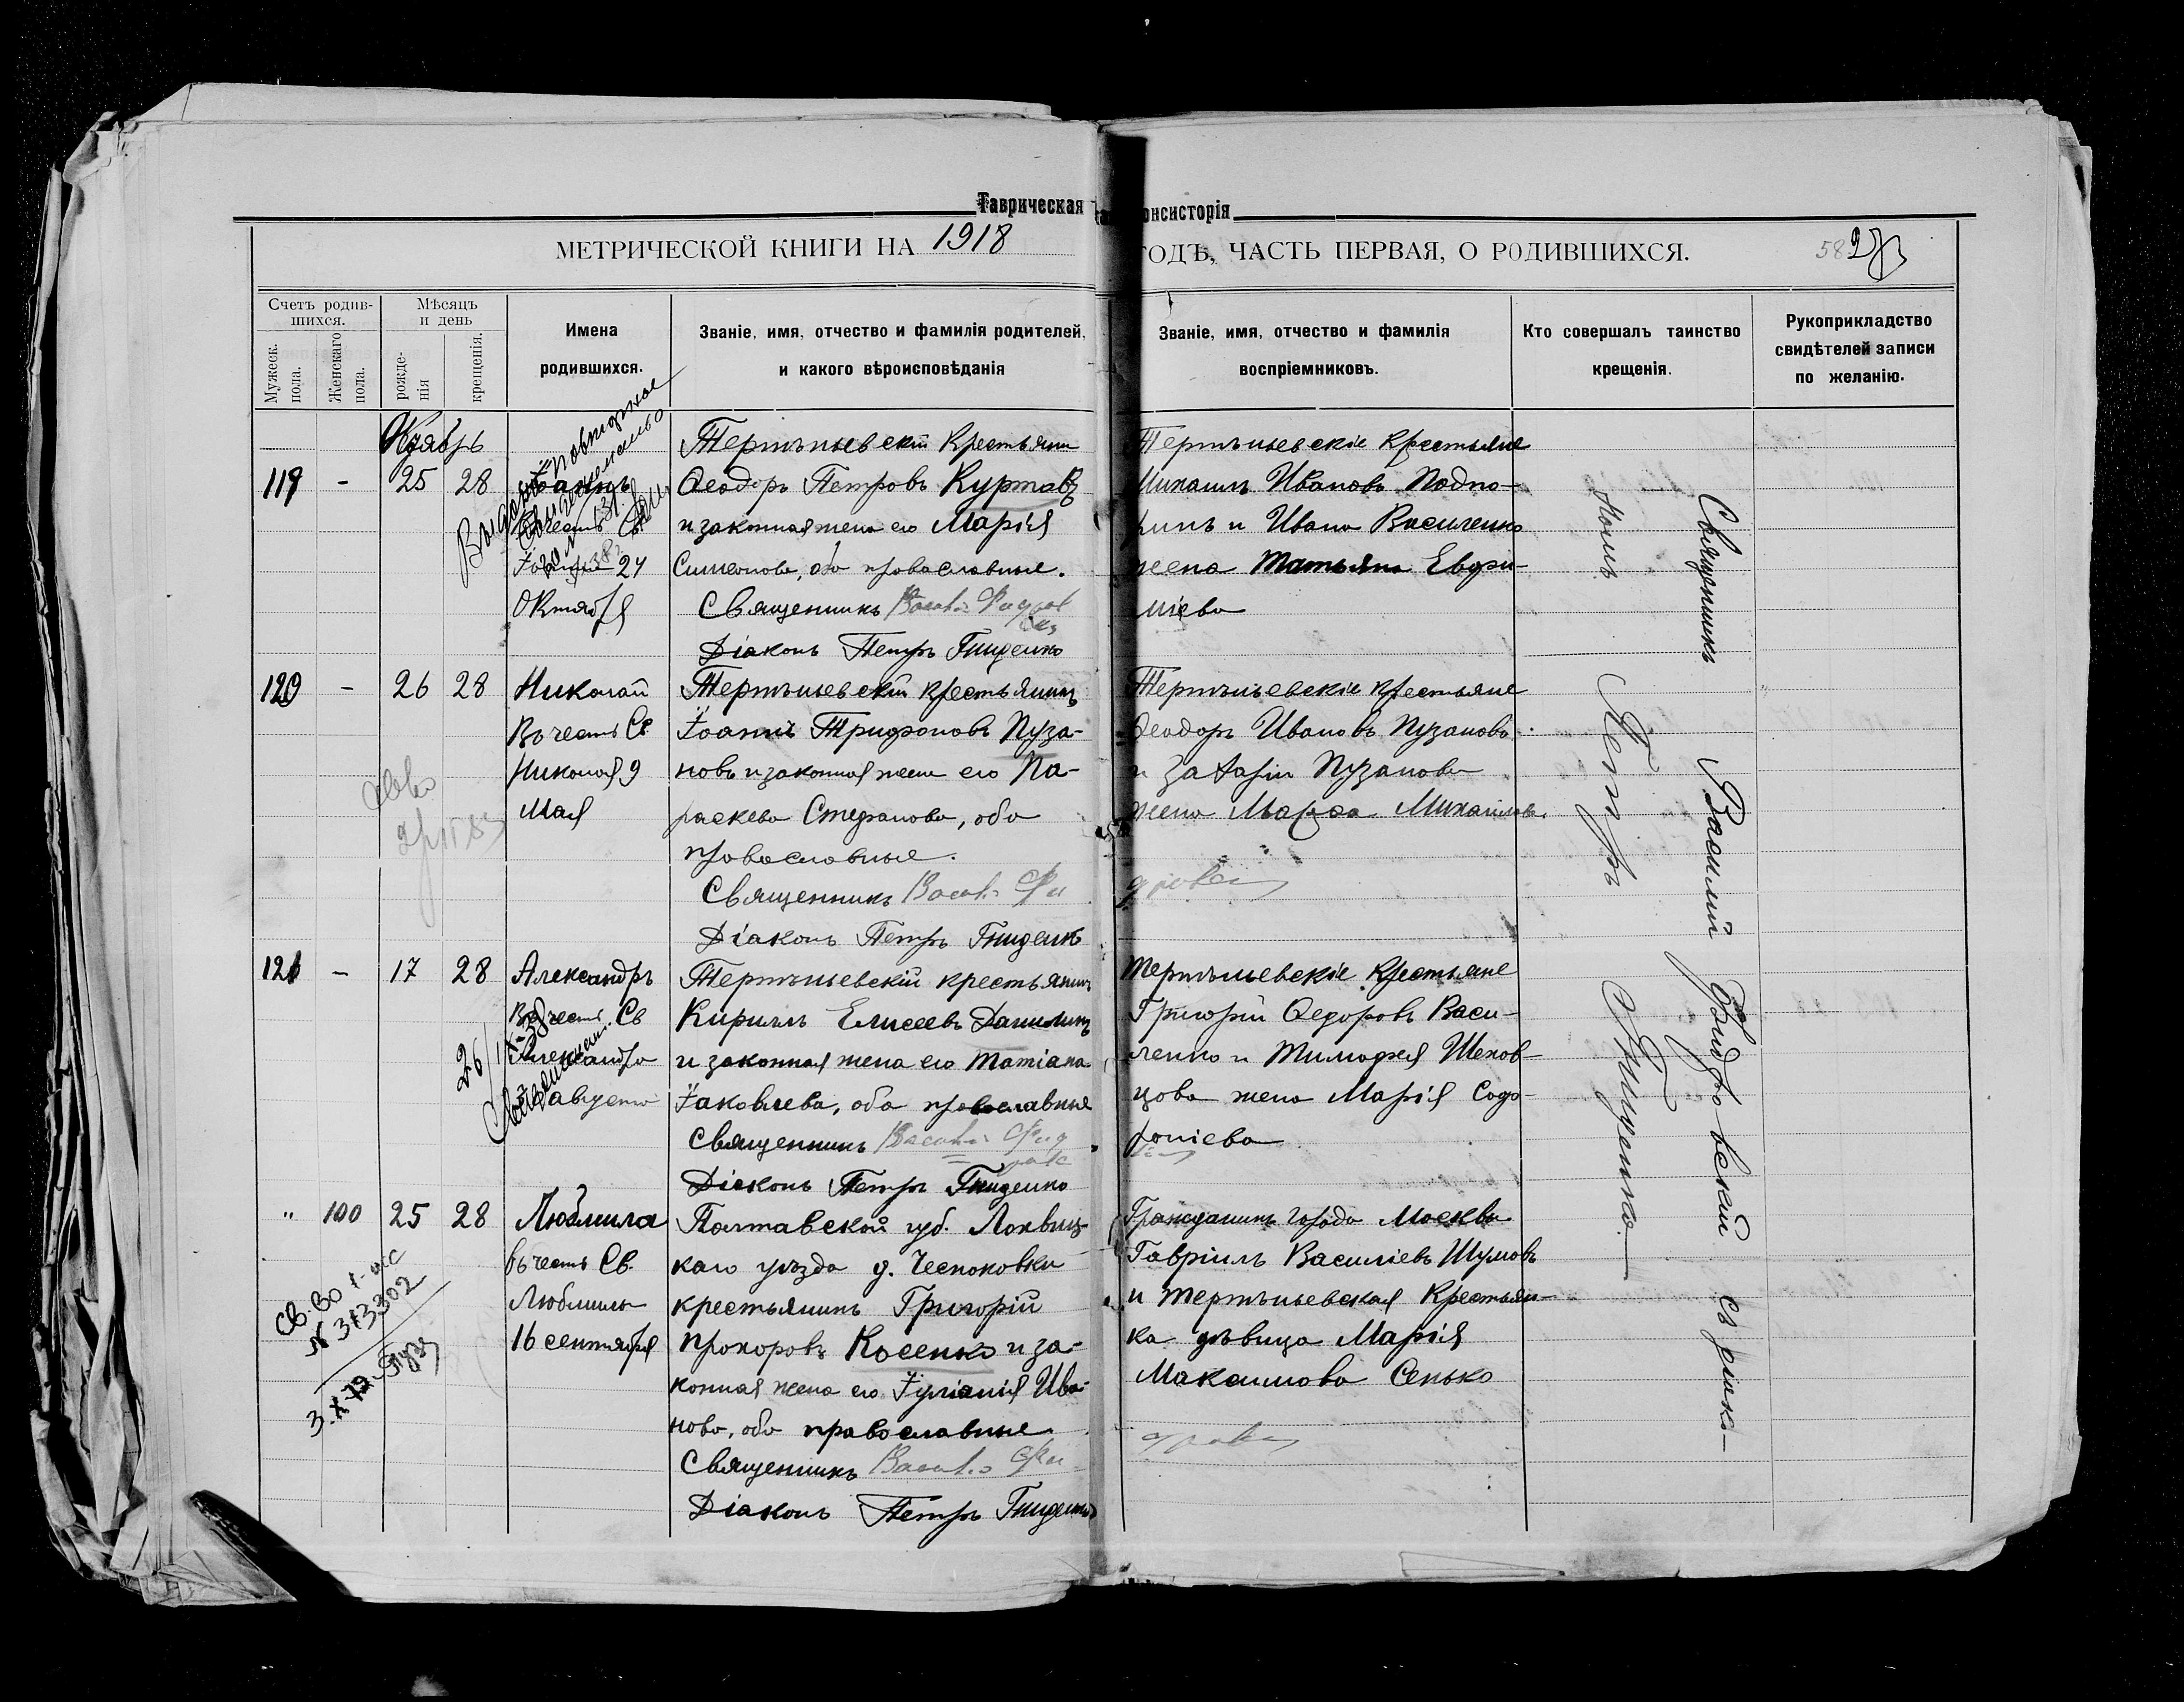 Таврическая
онсисторія
МЕТРИЧЕСКОЙ КНИГИ НА 1918
ГОДЪ, ЧАСТЬ ПЕРВАЯ, О РОДИВШИХСЯ.
58
Счетъ родив-
шихся.
Мужеск.
пола.
Женскаго
пола.
Мѣсяцъ
и день
рожде-
нія
крещенія.
Имена
родившихся.
Званіе, имя, отчество и фамилія родителей,
и какого вѣроисповѣданія
Званіе, имя, отчество и фамилія
воспріемниковъ.
Кто совершалъ таинство
крещенія.
Рукоприкладство
свидѣтелей записи
по желанію.
119 - 25 28
24
Октября
Тертъньевскій крестьянин
Ѳеодоръ Петровъ Куртовъ
и законная жена его Марія
Симеонова, оба православные.
Священникъ
Діаконъ Петръ Гниденко
Тертъньевскіе крестьяне
Михаилъ Ивановъ Подпо-
ринъ и Ивана Василенко
жена Татьяна Евфи-
міева
120 - 26 28
Николай
Въ честь Св
Николая 9
Мая
Тертъньевскій крестьянинъ
Іоаннъ Трифоновъ Пуза-
новъ и законная жена его Па-
раскева Стефанова, оба
православные.
Священникъ
Діаконъ Петръ Гниденко
Тертъньевскіе крестьяне
Ѳеодоръ Ивановъ Пузановъ
и Захарія Пузанова
жена Марѳа Михаилова.
121 - 17 28
Александръ
Въ честь Св
Александра
августа
Тертъньевскій крестьянинъ
Кириллъ Елисеевъ Данилинъ
и законная жена его Татіана
Іаковлева, оба православные
Священникъ
Діаконъ Петръ Гниденко
Тертъньевскіе крестьяне
Григорій Ѳедоровъ Васи-
ленко и Тимоѳея Шехов-
цова жена Марія Софро-
ніева
" 100 25 28
Людмила
въ честь Св.
Людмилы
16 сентября
Полтавской губ. Лохвиц-
каго уѣзда д. Чесноковки
крестьянинъ Григорій
Прохоровъ Косенко и за-
конная жена его Іуліанія Ива-
нова, оба православные.
Священникъ
Діаконъ Петръ Гниденко
Гражданинъ города Москвы
Гавріилъ Василіевъ Шумовъ
и Тертъньевская крестьян-
ка дѣвица Марія
Максимова Сенько
№ 313302
Священникъ Василій Фидровскій съ діако-
номъ Петръ Гниденко